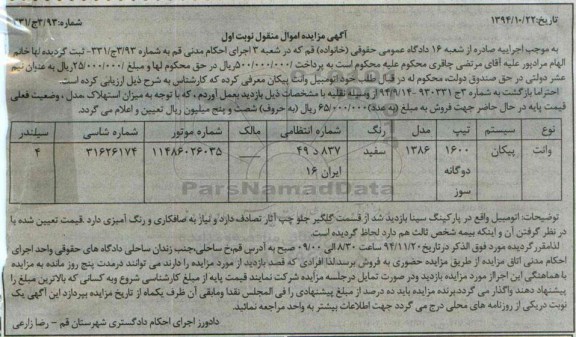 تاریخ:۱۳۹۴/۱۰/۲۲
شماره:۳/۹۳ج/۳۳۱
آگهی مزایده اموال منقول نوبت اول
به موجب اجراییه صادره از شعبه ۱۶ دادگاه عمومی حقوقی (خانواده) قم که در شعبه ۳ اجرای احکام مدنی قم به شماره ۳/۹۳ج/۳۳۱- ثبت گردیده لها خانم
الهام مرادپور علیه آقای مرتضی چاقری محکوم علیه محکوم است به پرداخت /۵۰۰/۰۰۰/۰۰۰ریال در حق محکوم لها و مبلغ /۲۵/۰۰۰/۰۰۰ریال به عنوان نیم
عشر دولتی در حق صندوق دولت، محکوم له در قبال طلب خود اتومبیل وانت پیکان معرفی کرده که کارشناس به شرح ذیل ارزیابی کرده است.
احتراما بازگشت به شماره ۳ج ۹۳۰۳۳۱-۹۴/۹/۱۴ از وسیله نقلیه با مشخصات ذیل بازدید بعمل آوردم ، که با توجه به میزان استهلاک مدل ، وضعیت فعلی
قیمت پایه در حال حاضر جهت فروش به مبلغ (به عدد) ۶۵/۰۰۰/۰۰۰ ریال (به حروف) شصت و پنج میلیون ریال تعیین و اعلام می گردد.
نوع سیستم تیپ مدل رنگ شماره انتظامی مالک شماره موتور شماره شاسی سیلندر
وانت پیکان ۱۶۰۰ ۱۳۸۶ سفید ۸۳۷ د ۴۹ — ۱۱۴۸۶۰۲۶۰۳۵ ۳۱۶۲۶۱۷۴ ۴
دوگانه ایران ۱۶
سوز
ParsNamadData
توضیحات: اتومبیل واقع در پارکینگ سینا بازدید شد از قسمت گلگیر جلو چپ آثار تصادف دارد و نیاز به صافکاری و رنگ آمیزی دارد .قیمت تعیین شده با
در نظر گرفتن آن و اینکه بیمه شخص ثالث هم دارد لحاظ گردیده است.
لذامقرر گردیده مورد فوق الذکر درتاریخ ۹۴/۱۱/۲۰ ساعت ۸/۳۰ الی ۰۹/۰۰ صبح به آدرس قم‌خ ساحلی،جنب زندان ساحلی دادگاه های حقوقی واحد اجرای
احکام مدنی اتاق مزایده از طریق مزایده حضوری به فروش برسد.لذا افرادی که قصد بازدید از مورد مزایده را دارند می توانند درمدت پنج روز مانده به مزایده
با هماهنگی این اجرا از مورد مزایده بازدید ودر صورت تمایل درجلسه مزایده شرکت نمایند قیمت پایه از مبلغ کارشناسی شروع وبه کسانی که بالاترین مبلغ را
پیشنهاد دهند واگذار می گردد.برنده مزایده باید ده درصد از مبلغ پیشنهادی را فی المجلس نقدا ومابقی آن ظرف یکماه از تاریخ مزایده بپردازد این آگهی یک
نوبت دریکی از روزنامه های محلی درج می گردد جهت اطلاعات بیشتر به واحد مراجعه نمائید.
دادورز اجرای احکام دادگستری شهرستان قم - رضا زارعی